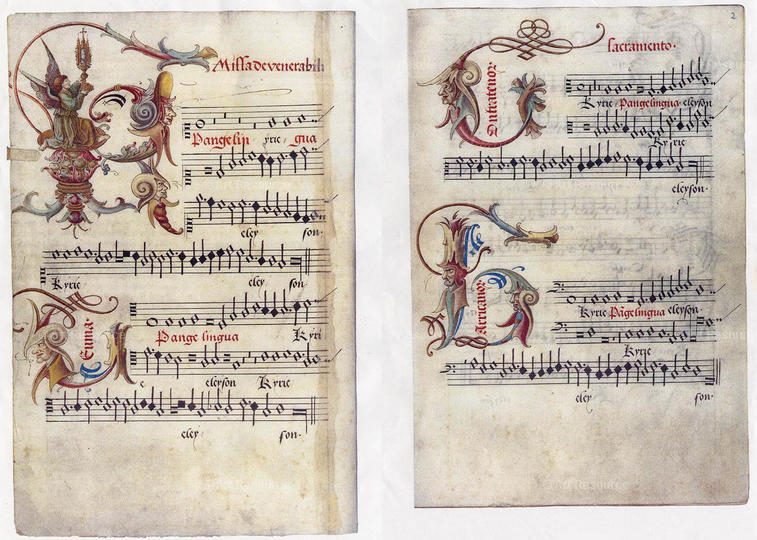 Missa de venerabili
Pangelin yrie gua
eley son.
Kyrie eley son
Euma.
Pange lingua Kyri
e eleyson Kyrie
eley son.
2
sacramento.
Kyrie Pangelingua eleyson
Kyrie
eleyson.
Kyrie Pāgelingua eleyson.
Kyrie
eley son.